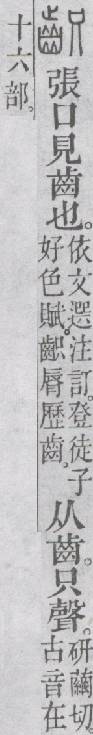 齞張口見齒也。依文選注訂。登徒子好色賦。齞脣歷齒。从齒。只聲。研繭切。古音在
十六部。